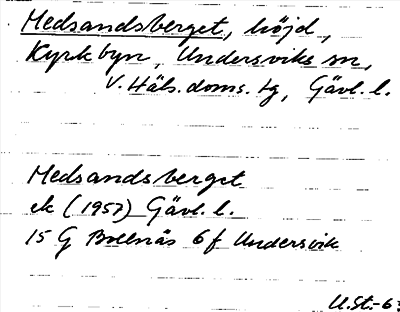 Medsandsberget, höjd,
Kyrkbyn, Undersviks sn,
V. Häls. doms. tg, Gävl. l.
Medsandsberget
ek (1957) Gävl. l.
15 G Bollnäs 6 f Undersvik
U.St.-63